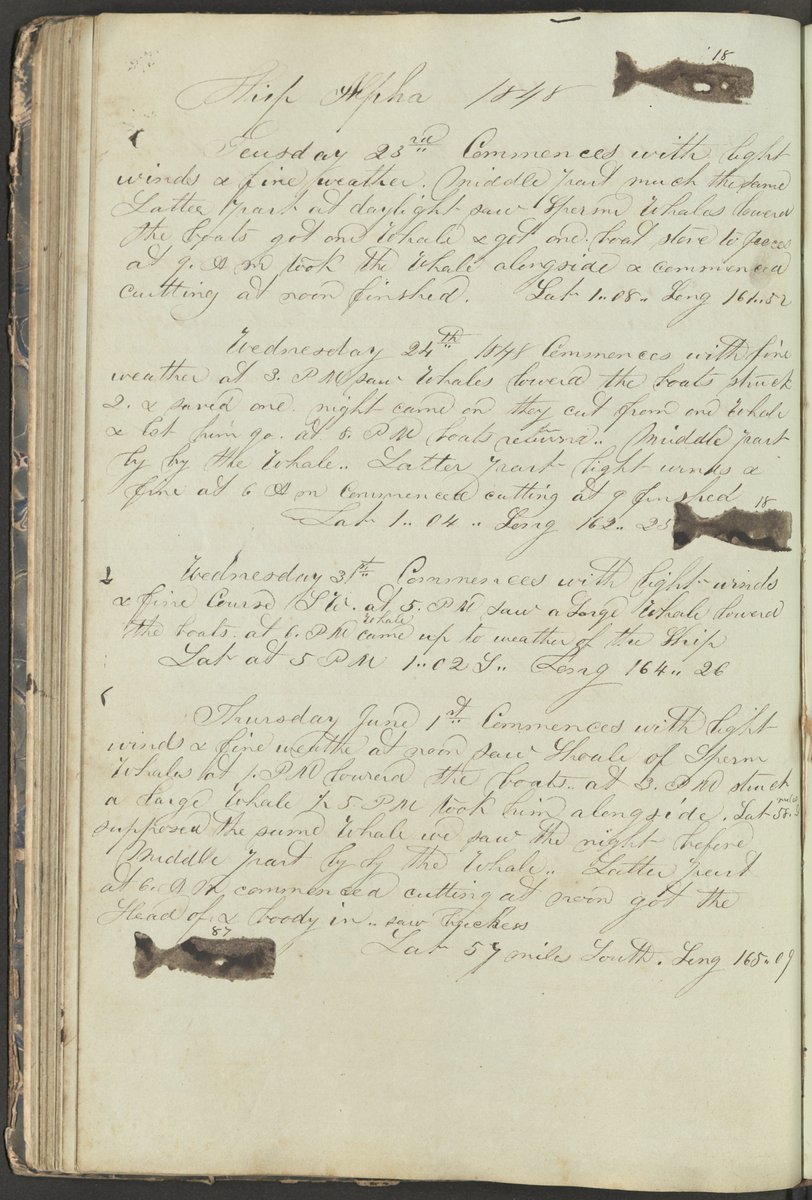 18
Ship Alpha 1848
Teusday 23rd Commences with light
winds & fine weather. Middle part much the same
Latter part at daylight saw Sperm Whales lowerd
the boats got one Whale & got one boat stove to peeces
at 9. A M took the Whale alongside & commenced
cutting at noon finshed. Lat 1..08.. Long 161..52
Wednesday 24th 1848 Commences with fine
weather at 3. PM saw Whales lowerd the boats struck
2. & saved one. night came on they cut from one Whale
& let him go. at 8. PM boats returnd.. Middle part
ly by the Whale.. Latter part light winds &
fine at 6 A m commenced cutting at 9 finshed
18
Lat 1..04.. Long 162..25
Wednesday 31st Commences with light winds
& fine Course S W. at 5. PM saw a Large Whale lowerd
the boats. at 6. PM Whale came up to weather of the Ship
Lat at 5 PM 1..02 S.. Long 164..26
Thursday June 1st Commences with light
winds & fine weathe at noon saw Shoale of Sperm
Whales at 1. PM lowerd the boats.. at 3. PM struck
a large Whale 5 PM took him alongside. Lat 58 miles S
supposed the same Whale we saw the night before
Middle part ly by the Whale.. Latter part
at 6. A M commenced cutting at noon got the
Head of & boody in.. saw
87
Lat 57 miles South. Long 165..09